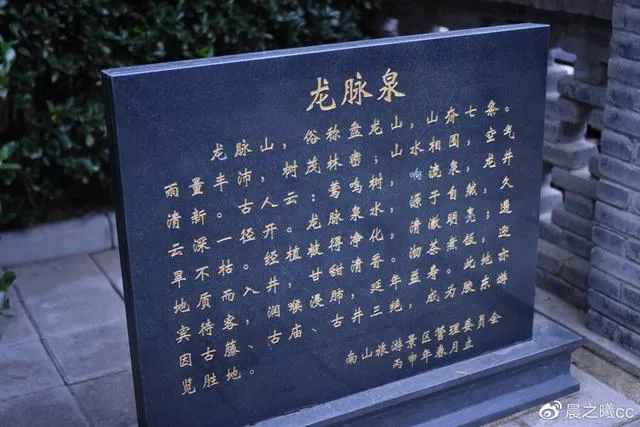 龙脉泉
龙脉山，俗称盘龙山，山脊七条。
雨量丰沛，树茂林密；山水相围，空气
清新。古人云：莺鸣树，响流泉，龙井
云深一径开。龙脉泉水，源于自然，久
旱不枯。经植被得净化，清澈明亮；遇
地质而入井，甘甜清香。沏茶煮饭，迎
宾待客，润喉浸肺，延年益寿。此地亦
因古藤、古庙、古井三绝，成为胶东游
览胜地。
南山旅游景区管理委员会
丙申年春月立
晨之曦cc